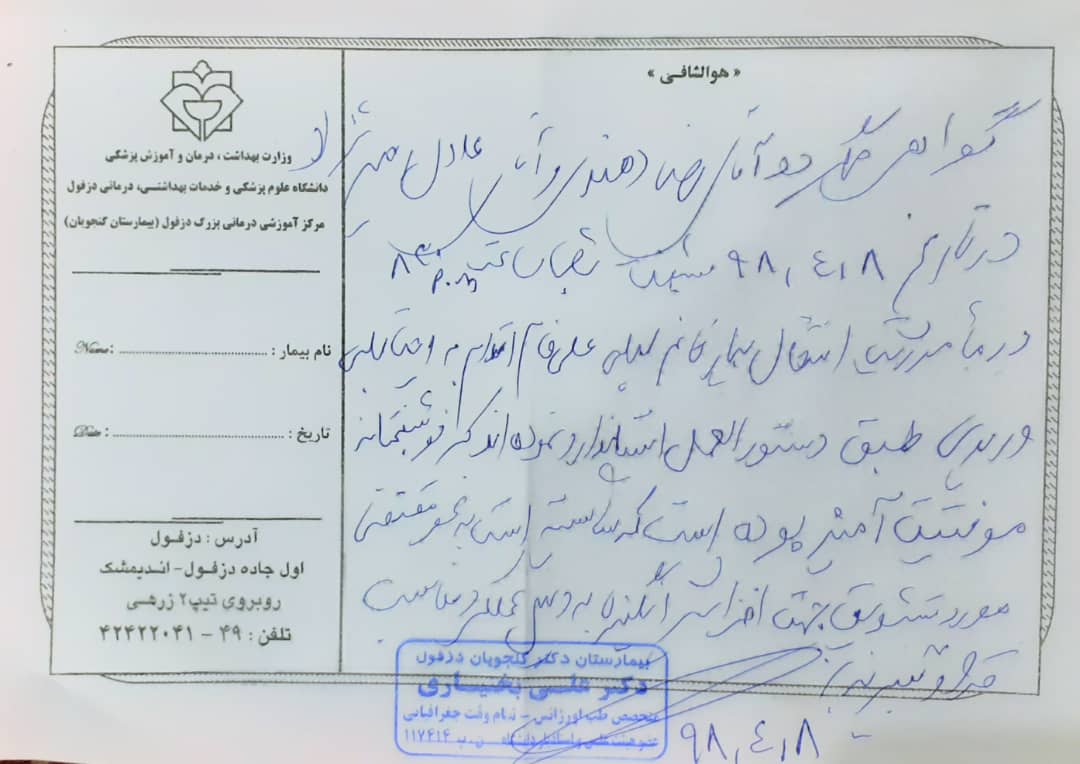 « هوالشافی »
وزارت بهداشت ، درمان و آموزش پزشکی
دانشگاه علوم پزشکی و خدمات بهداشتی، درمانی دزفول
مرکز آموزشی درمانی بزرگ دزفول (بیمارستان گنجویان)
نام بیمار : Name:
تاریخ : Date:
آدرس : دزفول
اول جاده دزفول- اندیمشک
روبروی تیپ۲ زرهی
تلفن : ۴۹ - ۴۲۴۲۲۰۴۱
گواهی می‌گردد آقای رضا دهندی و آقای عادل
در تاریخ ۹۸,۴,۸ شیفت ساعت ۸۳۰ p.m
در مأموریت انتقال بیمار خانم علی اقدام به
وریدی طبق دستورالعمل استاندارد نموده‌اند که خوشبختانه
موفقیت آمیز بوده است که شایسته است به نحو مقتضی
مورد تشویق جهت افزایش انگیزه
قرار گیرند
۹۸,۴,۸
بیمارستان دکتر گنجویان دزفول
دکتر علی بختیاری
متخصص طب اورژانس - تمام وقت جغرافیائی
عضو هیئت علمی و استادیار دانشگاه ن.پ ۱۱۷۴۱۴